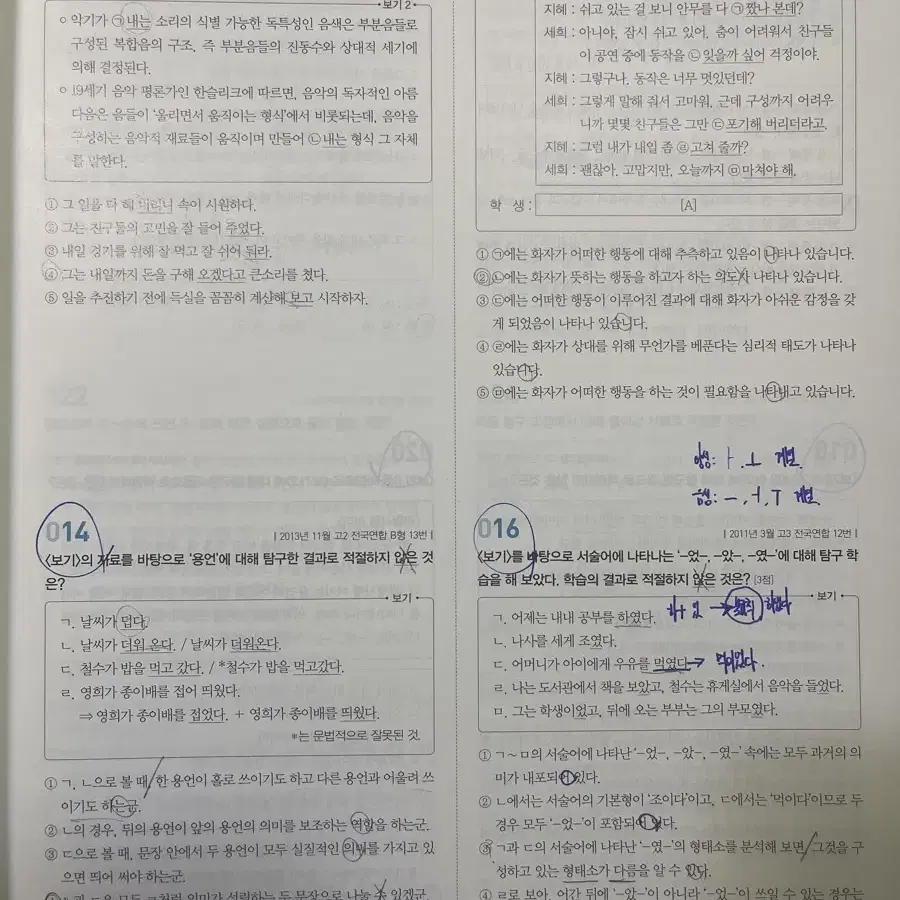 보기 2
악기가 ㉠내는 소리의 식별 가능한 독특성인 음색은 부분음들로
구성된 복합음의 구조, 즉 부분음들의 진동수와 상대적 세기에
의해 결정된다.
19세기 음악 평론가인 한슬리크에 따르면, 음악의 독자적인 아름
다움은 음들이 '울리면서 움직이는 형식'에서 비롯되는데, 음악을
구성하는 음악적 재료들이 움직이며 만들어 ㉡내는 형식 그 자체
를 말한다.
① 그 일을 다 해 버리니 속이 시원하다.
② 그는 친구들의 고민을 잘 들어 주었다.
③ 내일 경기를 위해 잘 먹고 잘 쉬어 둬라.
④ 그는 내일까지 돈을 구해 오겠다고 큰소리를 쳤다.
⑤ 일을 추진하기 전에 득실을 꼼꼼히 계산해 보고 시작하자.
014
| 2013년 11월 고2 전국연합 B형 13번 |
<보기>의 자료를 바탕으로 '용언'에 대해 탐구한 결과로 적절하지 않은 것
은?
보기
ㄱ. 날씨가 덥다.
ㄴ. 날씨가 더워 온다. / 날씨가 더워온다.
ㄷ. 철수가 밥을 먹고 갔다. / *철수가 밥을 먹고갔다.
ㄹ. 영희가 종이배를 접어 띄웠다.
⇒ 영희가 종이배를 접었다. + 영희가 종이배를 띄웠다.
*는 문법적으로 잘못된 것.
① ㄱ, ㄴ으로 볼 때, 한 용언이 홀로 쓰이기도 하고 다른 용언과 어울려 쓰
이기도 하는군.
② ㄴ의 경우, 뒤의 용언이 앞의 용언의 의미를 보조하는 역할을 하는군.
③ ㄷ으로 볼 때, 문장 안에서 두 용언이 모두 실질적인 의미를 가지고 있
으면 띄어 써야 하는군.
지혜 : 쉬고 있는 걸 보니 안무를 다 ㉠짰나 본데?
세희 : 아니야, 잠시 쉬고 있어. 춤이 어려워서 친구들
이 공연 중에 동작을 ㉡잊을까 싶어 걱정이야.
지혜 : 그렇구나. 동작은 너무 멋있던데?
세희 : 그렇게 말해 줘서 고마워. 근데 구성까지 어려우
니까 몇몇 친구들은 그만 ㉢포기해 버리더라고.
지혜 : 그럼 내가 내일 좀 ㉣고쳐 줄까?
세희 : 괜찮아. 고맙지만, 오늘까지 ㉤마쳐야 해.
학 생 : [A]
① ㉠에는 화자가 어떠한 행동에 대해 추측하고 있음이 나타나 있습니다.
② ㉡에는 화자가 뜻하는 행동을 하고자 하는 의도가 나타나 있습니다.
③ ㉢에는 어떠한 행동이 이루어진 결과에 대해 화자가 아쉬운 감정을 갖
게 되었음이 나타나 있습니다.
④ ㉣에는 화자가 상대를 위해 무언가를 베푼다는 심리적 태도가 나타나
있습니다.
⑤ ㉤에는 화자가 어떠한 행동을 하는 것이 필요함을 나타내고 있습니다.
양성: ㅏ, ㅗ 계열
음성: ㅡ, ㅓ, ㅜ 계열
016
| 2011년 3월 고3 전국연합 12번 |
<보기>를 바탕으로 서술어에 나타나는 '-었-, -았-, -였-'에 대해 탐구 학
습을 해 보았다. 학습의 결과로 적절하지 않은 것은? [3점]
보기
ㄱ. 어제는 내내 공부를 하였다.
ㄴ. 나사를 세게 조였다.
ㄷ. 어머니가 아이에게 우유를 먹였다. → 먹이었다.
ㄹ. 나는 도서관에서 책을 보았고, 철수는 휴게실에서 음악을 들었다.
ㅁ. 그는 학생이었고, 뒤에 오는 부부는 그의 부모였다.
① ㄱ～ㅁ의 서술어에 나타난 '-었-, -았-, -였-' 속에는 모두 과거의 의
미가 내포되어 있다.
② ㄴ에서는 서술어의 기본형이 '조이다'이고, ㄷ에서는 '먹이다'이므로 두
경우 모두 '-었-'이 포함되어 있다.
③ ㄱ과 ㄷ의 서술어에 나타난 '-였-'의 형태소를 분석해 보면, 그것을 구
성하고 있는 형태소가 다름을 알 수 있다.
④ ㄹ로 보아, 어간 뒤에 '-았-'이 아니라 '-었-'이 쓰일 수 있는 경우는